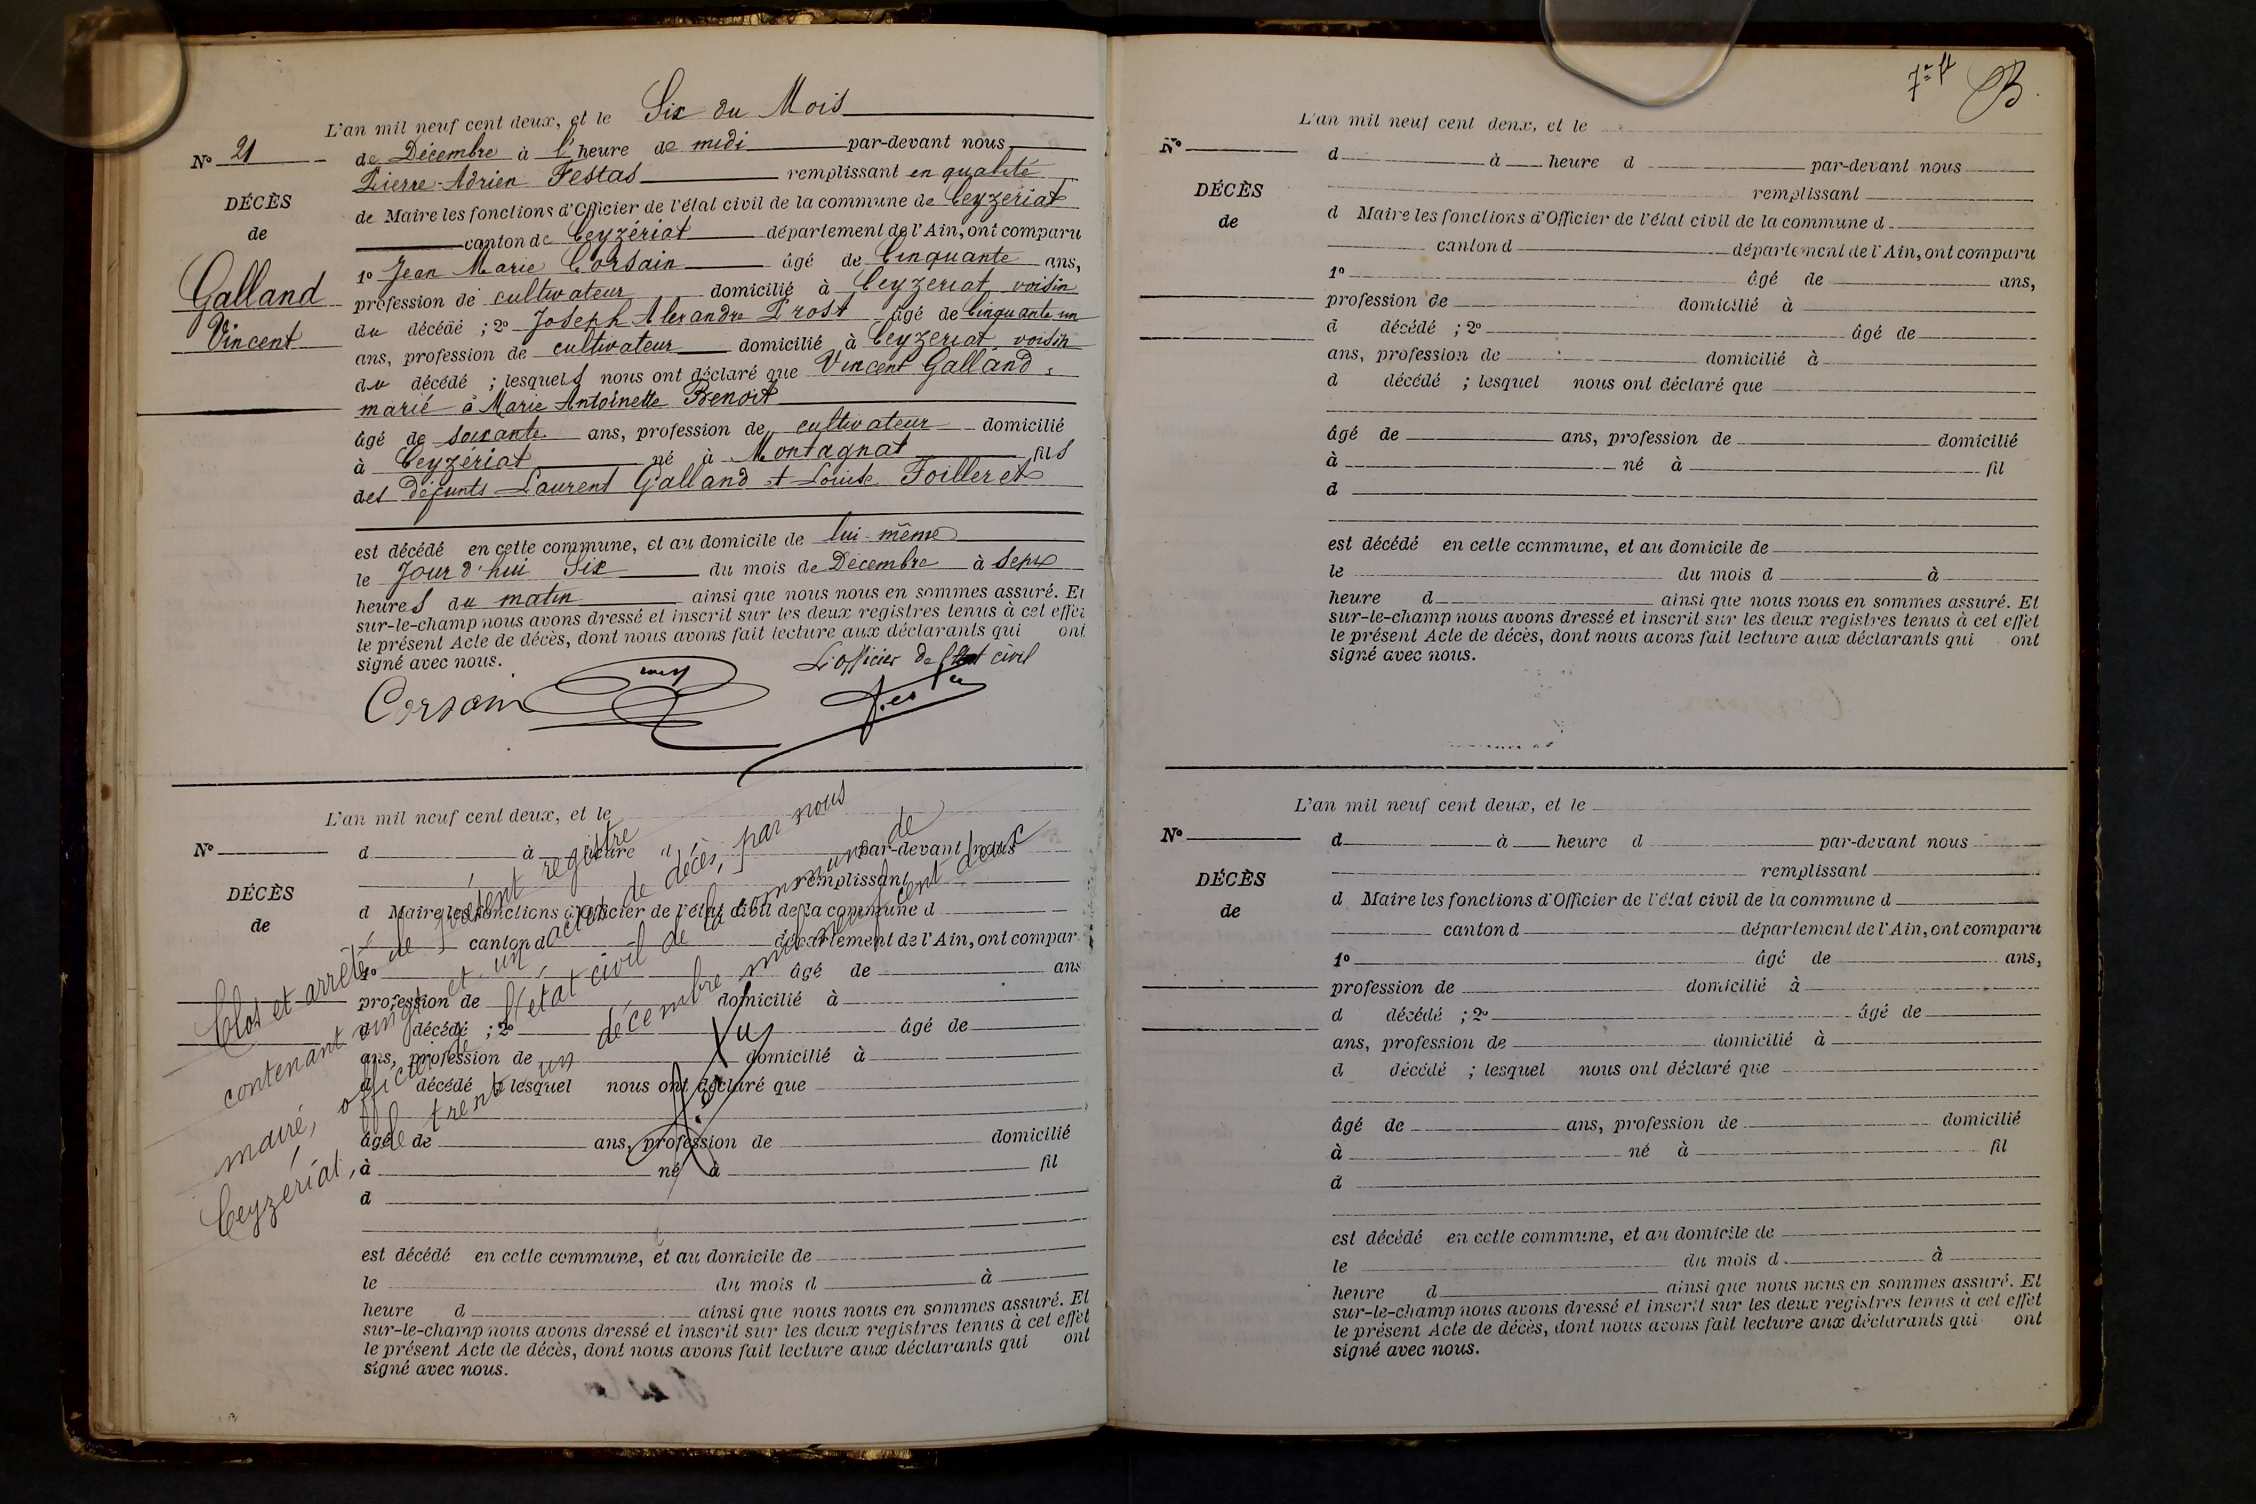 L'an mil neuf cent deux, et le Six du Mois
N° 21
de Décembre à l'heure de midi par-devant nous
Pierre-Adrien Festas remplissant en qualité
DÉCÈS
de Maire les fonctions d'Officier de l'état civil de la commune de Ceyzériat
de
canton de Ceyzériat département de l'Ain, ont comparu
1° Jean Marie Corsain âgé de Cinquante ans,
Galland
profession de cultivateur domicilié à Ceyzériat, voisin
Vincent
du décédé ; 2° Joseph Alexandre Prost âgé de Cinquante un
ans, profession de cultivateur domicilié à Ceyzériat, voisin
du décédé ; lesquels nous ont déclaré que Vincent Galland,
marié à Marie Antoinette Benoit
âgé de soixante ans, profession de cultivateur domicilié
à Ceyzériat né à Montagnat fils
des défunts Laurent Galland et Louise Foilleret
est décédé en cette commune, et au domicile de lui-même
le Jour d'hui Six du mois de Décembre à Sept
heures du matin ainsi que nous nous en sommes assuré. Et
sur-le-champ nous avons dressé et inscrit sur les deux registres tenus à cet effet
le présent Acte de décès, dont nous avons fait lecture aux déclarants qui ont
signé avec nous.
L'officier de l'état civil
Corsain
L'an mil neuf cent deux, et le
N°
d à heure d par-devant nous
remplissant
DÉCÈS
d Maire les fonctions d'Officier de l'état civil de la commune d
de
canton d département de l'Ain, ont compar
1° âgé de ans
profession de domicilié à
d décédé ; 2° âgé de
ans, profession de domicilié à
d décédé ; lesquel nous ont déclaré que
âgé de ans, profession de domicilié
à né à fil
d
est décédé en cette commune, et au domicile de
le du mois d à
heure d ainsi que nous nous en sommes assuré. Et
sur-le-champ nous avons dressé et inscrit sur les deux registres tenus à cet effet
le présent Acte de décès, dont nous avons fait lecture aux déclarants qui ont
signé avec nous.
Clos et arrêté le présent registre
contenant vingt et un actes de décès, par nous
maire, officier de l'état civil de la commune de
Ceyzériat, le trente un décembre mil neuf cent deux
B
L'an mil neuf cent deux, et le
N°
d à heure d par-devant nous
remplissant
DÉCÈS
de
d Maire les fonctions d'Officier de l'état civil de la commune d
canton d département de l'Ain, ont comparu
1° âgé de ans,
profession de domicilié à
d décédé ; 2° âgé de
ans, profession de domicilié à
d décédé ; lesquel nous ont déclaré que
âgé de ans, profession de domicilié
à né à fil
d
est décédé en cette commune, et au domicile de
le du mois d à
heure d ainsi que nous nous en sommes assuré. Et
sur-le-champ nous avons dressé et inscrit sur les deux registres tenus à cet effet
le présent Acte de décès, dont nous avons fait lecture aux déclarants qui ont
signé avec nous.
L'an mil neuf cent deux, et le
N°
d à heure d par-devant nous
remplissant
DÉCÈS
d Maire les fonctions d'Officier de l'état civil de la commune d
de
canton d département de l'Ain, ont comparu
1° âgé de ans,
profession de domicilié à
d décédé ; 2° âgé de
ans, profession de domicilié à
d décédé ; lesquel nous ont déclaré que
âgé de ans, profession de domicilié
à né à fil
d
est décédé en cette commune, et au domicile de
le du mois d à
heure d ainsi que nous nous en sommes assuré. Et
sur-le-champ nous avons dressé et inscrit sur les deux registres tenus à cet effet
le présent Acte de décès, dont nous avons fait lecture aux déclarants qui ont
signé avec nous.